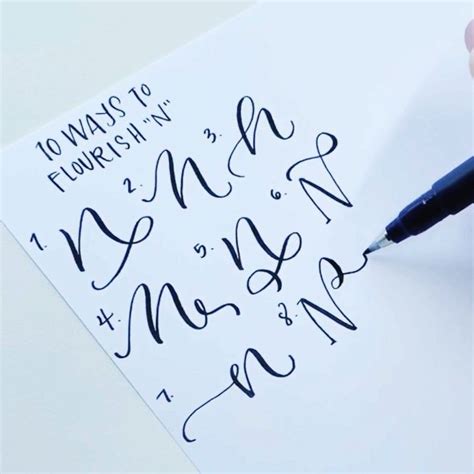 10 WAYS TO
FLOURISH "N"
1. n
2. n
3. n
4. n
5. n
6. N
7. n
8. N